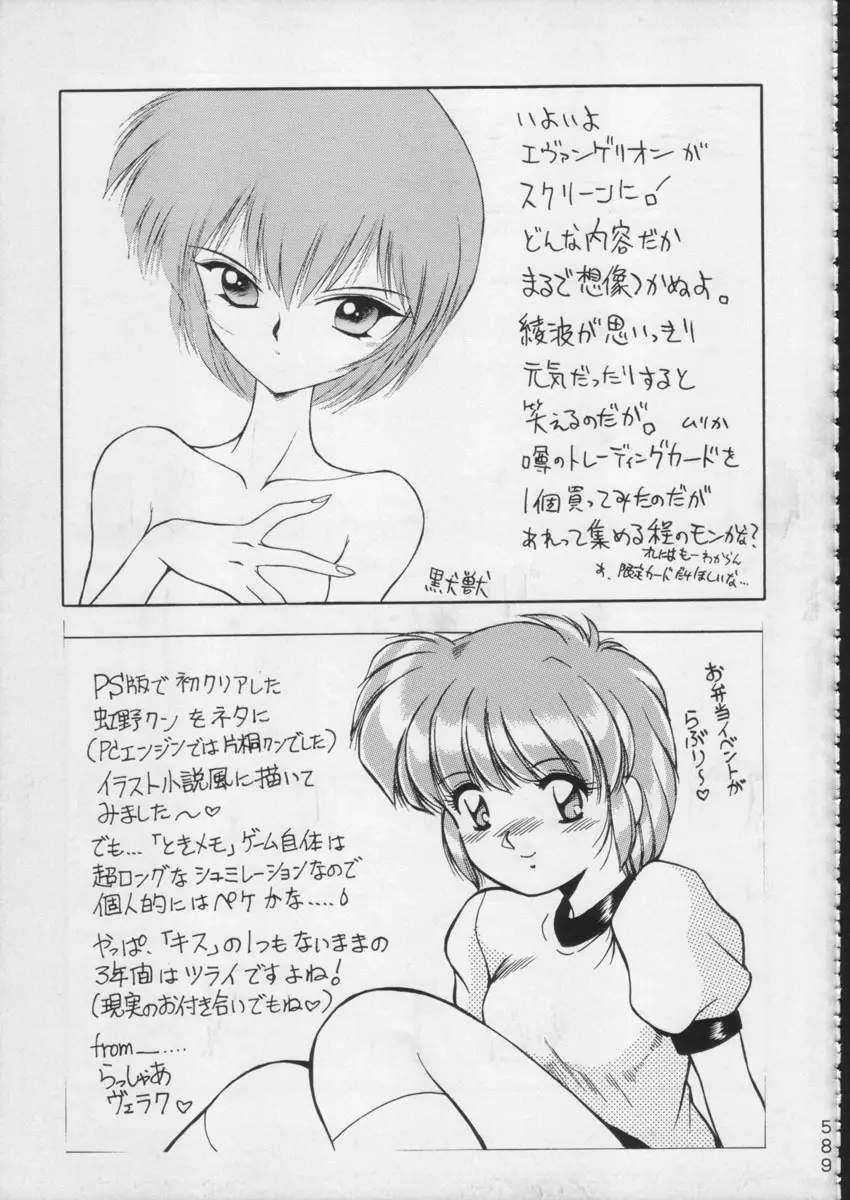 いよいよ
エヴァンゲリオンが
スクリーンに!
どんな内容だか
まるで想像つかぬよ。
綾波が思いっきり
元気だったりすると
笑えるのだが。ムリか
噂のトレーディングカードを
1個買ってみたのだが
あれって集める程のモンかな?
オレにはもーわからん
あ、限定カードだけほしいな…
黒犬獣
PS版で初クリアした
虹野クンをネタに
(PCエンジンでは片桐クンでした)
イラスト小説風に描いて
みました〜♡
でも…「ときメモ」ゲーム自体は
超ロングなシュミレーションなので
個人的にはペケかな……
やっぱ、「キス」の1つもないままの
3年間はツライですよね!
(現実のお付き合いでもね♡)
from_....
らっしゃあ
ヴェラク♡
お弁当イベントが
らぶり〜♡
589